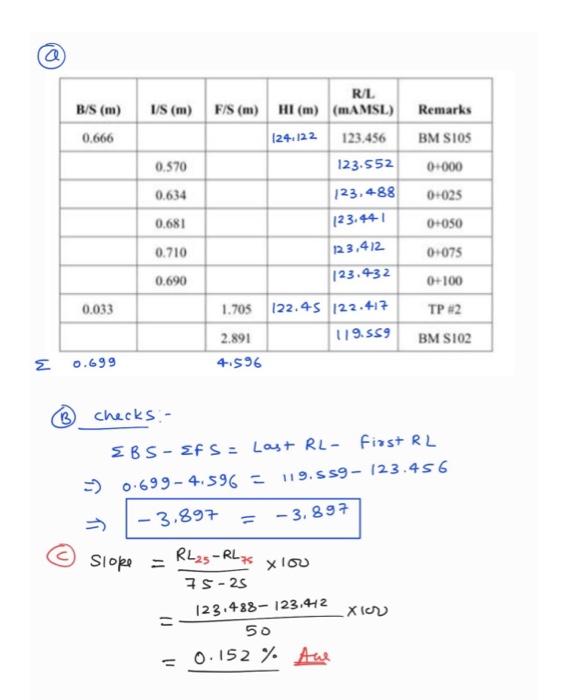 a
R/L
B/S (m) I/S (m) F/S (m) HI (m) (mAMSL) Remarks
0.666 124.122 123.456 BM S105
0.570 123.552 0+000
0.634 123.488 0+025
0.681 123.441 0+050
0.710 123.412 0+075
0.690 123.432 0+100
0.033 1.705 122.45 122.417 TP #2
2.891 119.559 BM S102
Σ 0.699 4.596
B checks:-
ΣBS - ΣFS = Last RL - First RL
⇒ 0.699 - 4.596 = 119.559 - 123.456
⇒ -3.897 = -3.897
C Slope = RL25 - RL75 × 100
75 - 25
= 123.488 - 123.412 × 100
50
= 0.152 % Ans